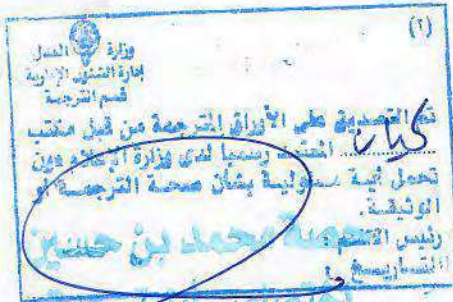 (٢)
وزارة العدل
إدارة الشئون الإدارية
قسم الترجمة
تم التصديق على الأوراق المترجمة من قبل مكتب
المعتمد رسميا لدى وزارة الإعلام دون
تحمل أية مسئولية بشأن صحة الترجمة أو
الوثيقة.
رئيس القسم
محمد بن حسين
التاريخ